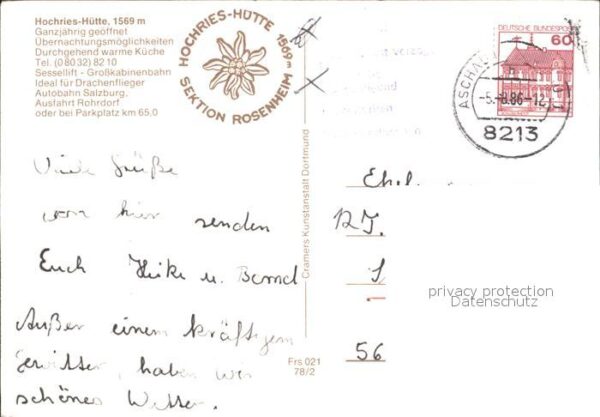 Hochries-Hütte, 1569 m
Ganzjährig geöffnet
Übernachtungsmöglichkeiten
Durchgehend warme Küche
Tel. (0 80 32) 82 10
Sessellift - Großkabinenbahn
Ideal für Drachenflieger
Autobahn Salzburg,
Ausfahrt Rohrdorf
oder bei Parkplatz km 65,0
HOCHRIES-HÜTTE 1569 m
SEKTION ROSENHEIM
DEUTSCHE BUNDESPOST
60
ASCHAU
-5.-8.86-12
8213
Viele Grüße
von hier senden
Euch Heike u. Bernd
Außer einem kräftigem
Gewitter, haben wir
schönes Wetter.
Cramers Kunstanstalt Dortmund
Frs 021
78/2
Ehel.
56
privacy protection
Datenschutz